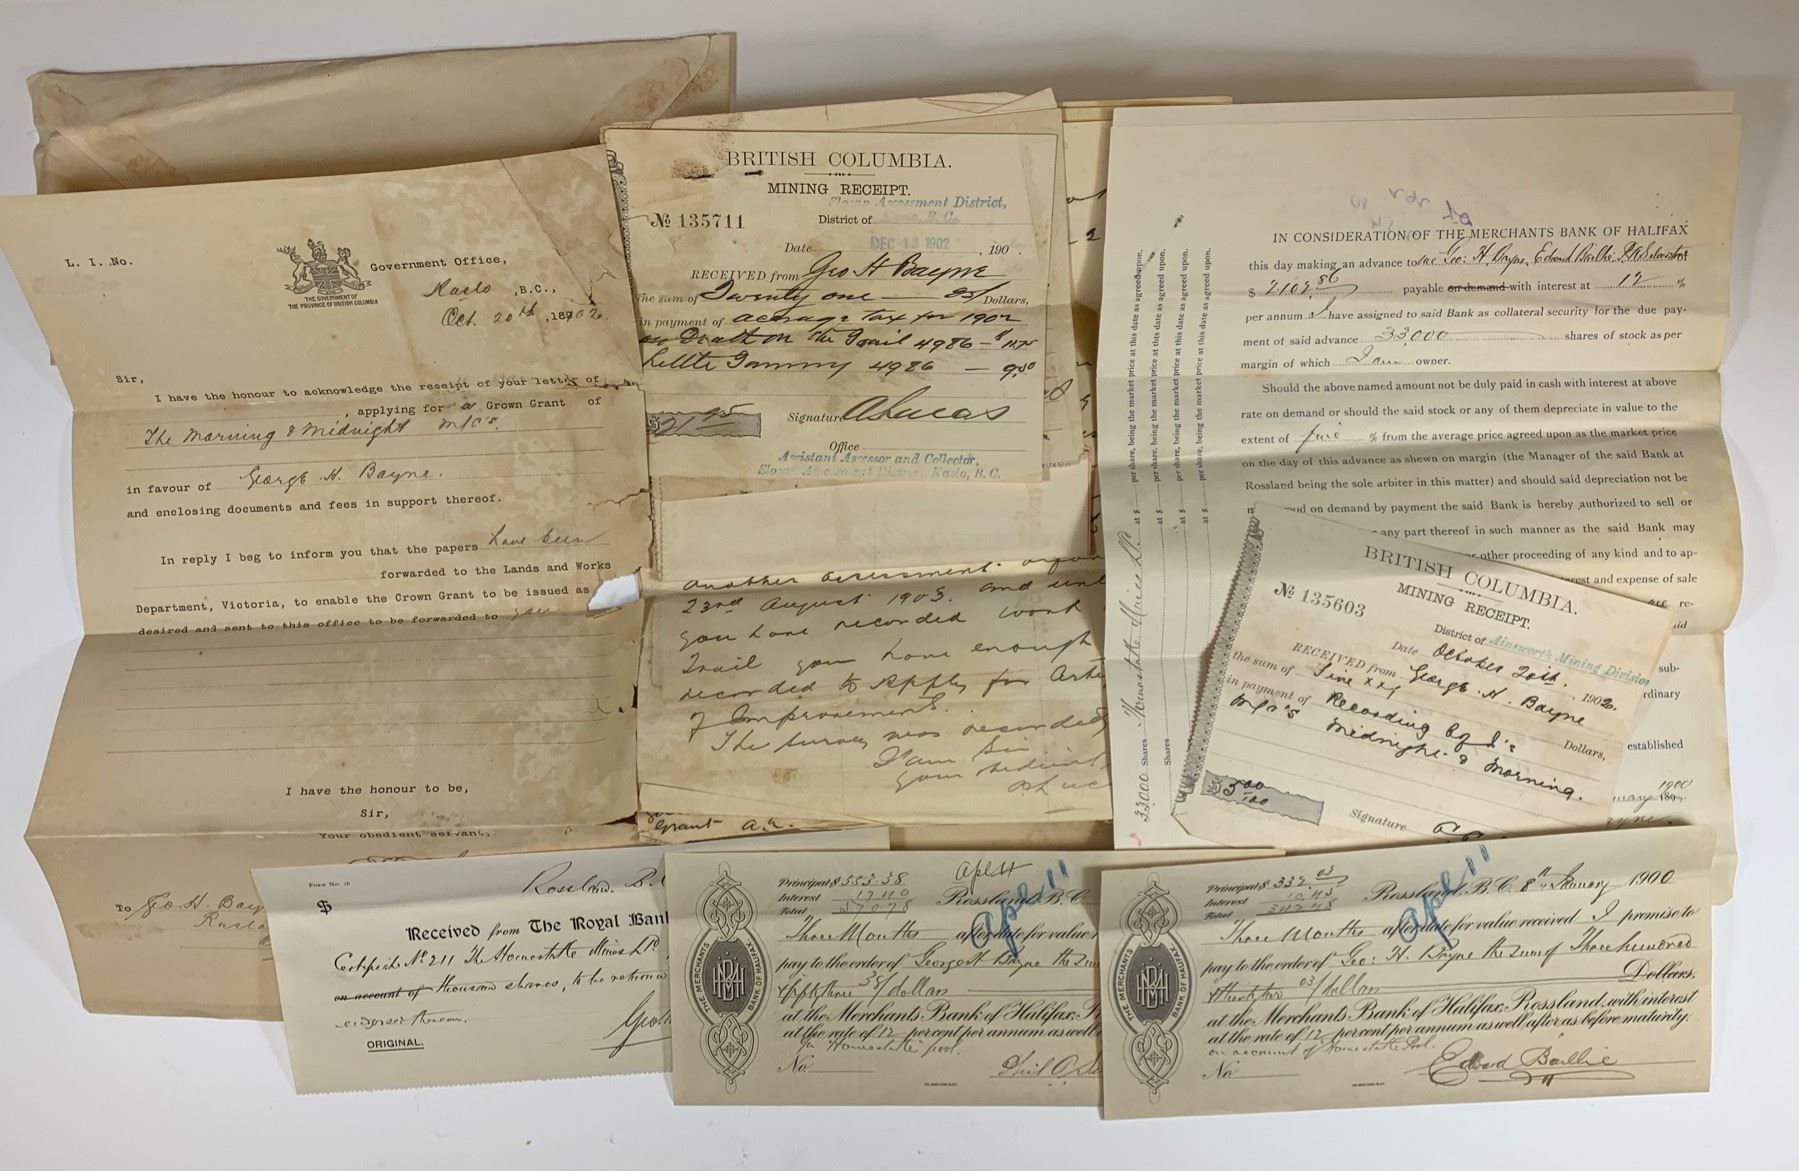 L. I. No.
THE GOVERNMENT OF
THE PROVINCE OF BRITISH COLUMBIA
Government Office,
Kaslo, B.C.,
Oct. 20th, 1902
Sir,
I have the honour to acknowledge the receipt of your letter of
, applying for a Crown Grant of
The Morning & Midnight M/C's.
in favour of George H. Bayne.
and enclosing documents and fees in support thereof.
In reply I beg to inform you that the papers have been
forwarded to the Lands and Works
Department, Victoria, to enable the Crown Grant to be issued as
desired and sent to this office to be forwarded to you
I have the honour to be,
Sir,
Your obedient servant,
To Geo H. Bay
BRITISH COLUMBIA.
MINING RECEIPT.
Slocan Assessment District,
No 135711
District of Kaslo, B.C.
Date DEC 13 1902, 190
RECEIVED from Geo H Bayne
the sum of Twenty one — 25/ Dollars,
in payment of acreage tax for 1902
on Death on the Trail 4986 — $11.75
Little Tammy 4986 — 9.50
Signature A Lucas
Office
Assistant Assessor and Collector,
Slocan Assessment District Kaslo, B. C.
another assessment
23rd August 1903. and unt
you have recorded work
Trail you have enough
recorded to apply for
of Improvement.
The survey was recorded
I am Sir
your obedient
Grant
33,000 Shares Homestake Mines at $ per share, being the market price at this date as agreed upon.
Shares at $ per share, being the market price at this date as agreed upon.
at $ per share, being the market price at this date as agreed upon.
at $ per share, being the market price at this date as agreed upon.
IN CONSIDERATION OF THE MERCHANTS BANK OF HALIFAX
this day making an advance to me Geo: H. Bayne, Edward Baillie
$ 2102.56 payable on demand with interest at 12 %
per annum I have assigned to said Bank as collateral security for the due pay-
ment of said advance 33,000 shares of stock as per
margin of which I am owner.
Should the above named amount not be duly paid in cash with interest at above
rate on demand or should the said stock or any of them depreciate in value to the
extent of five % from the average price agreed upon as the market price
on the day of this advance as shewn on margin (the Manager of the said Bank at
Rossland being the sole arbiter in this matter) and should said depreciation not be
on demand by payment the said Bank is hereby authorized to sell or
any part thereof in such manner as the said Bank may
or other proceeding of any kind and to ap-
rest and expense of sale
re-
aid
sub-
rdinary
established
1900
BRITISH COLUMBIA.
MINING RECEIPT.
No 135603
District of Ainsworth Mining Division
Date October 20th, 1902.
RECEIVED from George H. Bayne
the sum of Five xx/ Dollars,
in payment of Recording
M/C's Midnight & Morning.
$5.00
Signature
FORM No. 16
$
Rossland. B.C
Received from The Royal Bank
Certificate No 211 The Homestake Mines Ltd
on account of thousand shares, to be returned
endorsed thereon.
ORIGINAL.
Geo
THE MERCHANTS BANK OF HALIFAX.
Principal $ 553.38
Interest 17.40
Total 570.78
Apl 11
Rossland, B.C.
Apl 11
Three Months after date for value
pay to the order of George H Bayne the sum
& fifty three 38/ dollars
at the Merchants Bank of Halifax, R
at the rate of 12 per cent per annum as well
on "Homestake" pool.
No
THE MERCHANTS BANK OF HALIFAX.
Principal $ 332.03
Interest 10.45
Total 342.48
Apl 11
Rossland, B.C. 8th January 1900
Three Months after date for value received I promise to
pay to the order of Geo: H. Bayne the sum of Three hundred
& thirty two 03/ dollars Dollars.
at the Merchants Bank of Halifax, Rossland, with interest
at the rate of 12 per cent per annum as well after as before maturity.
on account of Homestake Pool.
No
Edward Baillie